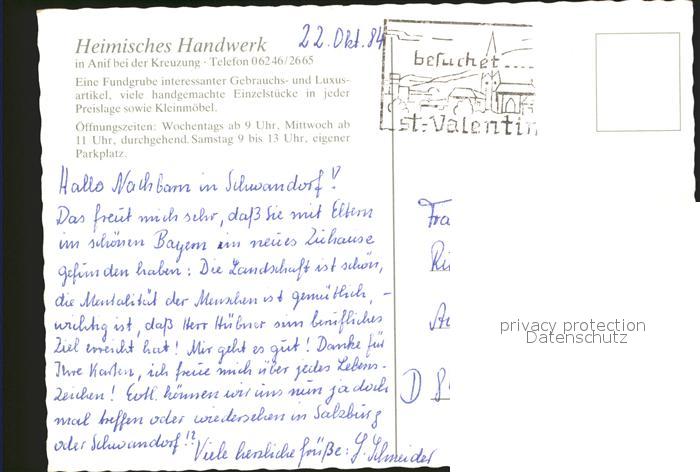 Heimisches Handwerk
in Anif bei der Kreuzung · Telefon 06246/2665
Eine Fundgrube interessanter Gebrauchs- und Luxus-
artikel, viele handgemachte Einzelstücke in jeder
Preislage sowie Kleinmöbel.
Öffnungszeiten: Wochentags ab 9 Uhr, Mittwoch ab
11 Uhr, durchgehend. Samstag 9 bis 13 Uhr, eigener
Parkplatz.
22. Okt. 84
besuchet....
st. Valentin
Hallo Nachbarn in Schwandorf!
Das freut mich sehr, daß Sie mit Eltern
im schönen Bayern ein neues Zuhause
gefunden haben: Die Landschaft ist schön,
die Mentalität der Menschen ist gemütlich, –
wichtig ist, daß Herr Hübner sein berufliches
Ziel erreicht hat! Mir geht es gut! Danke für
Ihre Karten, ich freue mich über jedes Lebens-
zeichen! Evtl. können wir uns nun ja doch
mal treffen oder wiedersehen in Salzburg
oder Schwandorf!?
Viele herzliche Grüße: G. Schneider
Fra
D 8
privacy protection
Datenschutz